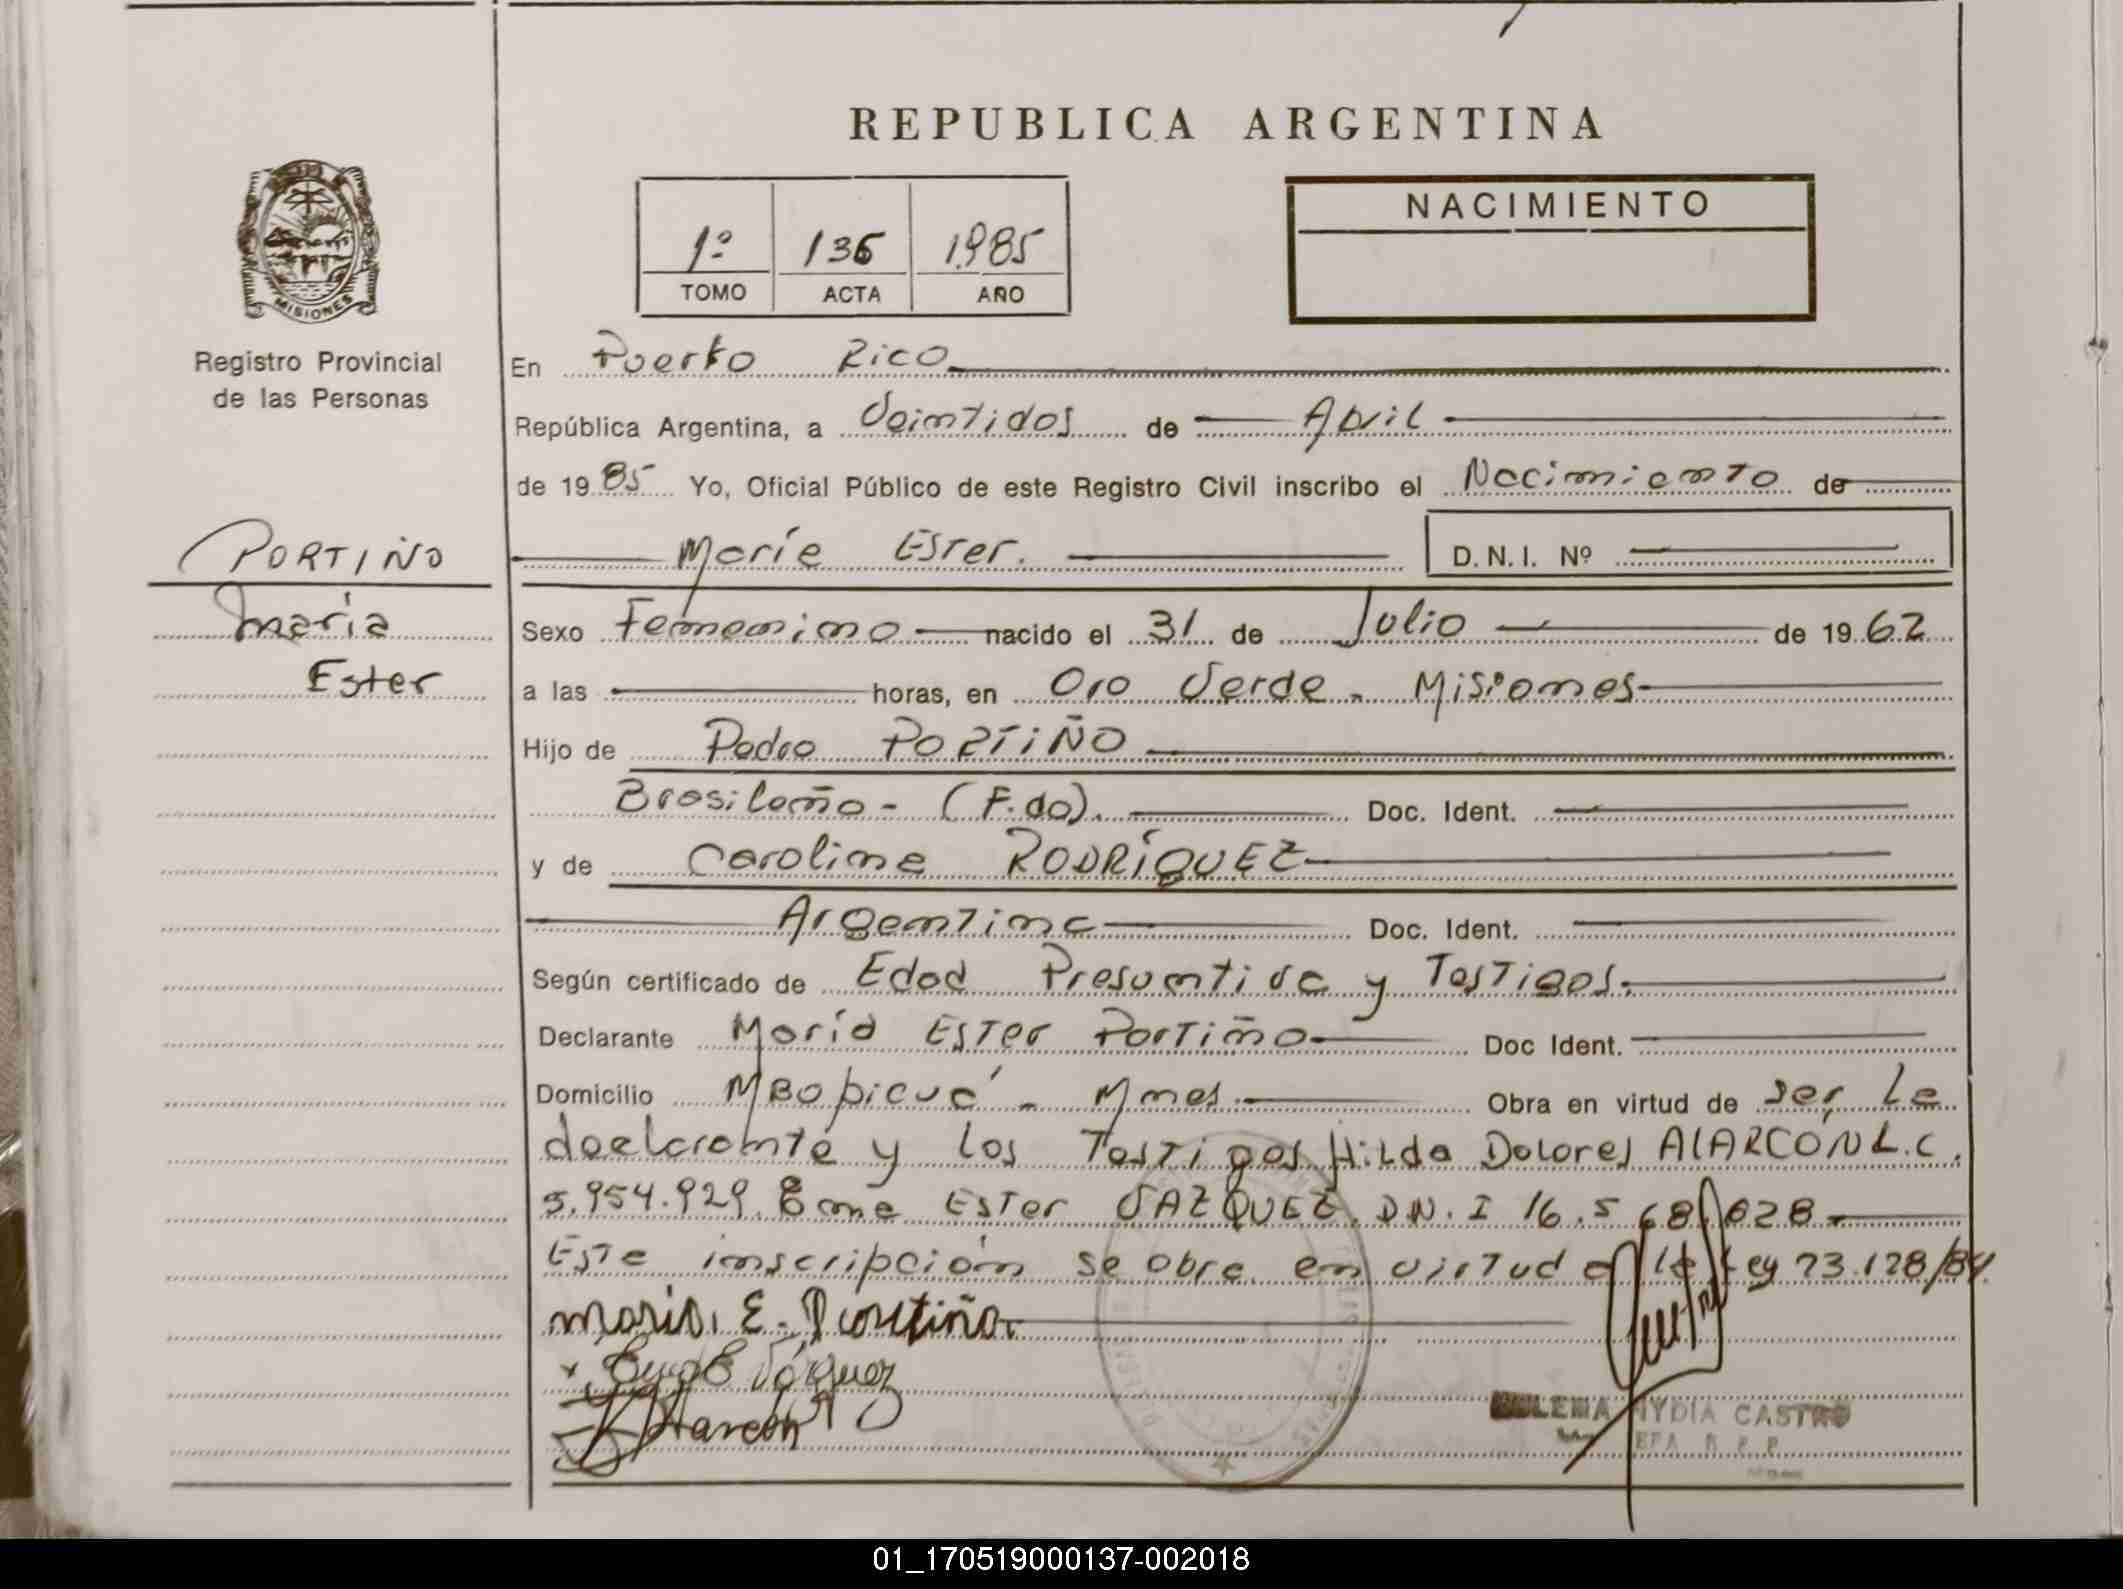 REPUBLICA ARGENTINA
NACIMIENTO
1º 136 1985
TOMO ACTA AÑO
MISIONES
Registro Provincial
de las Personas
PORTIÑO
Maria
Ester
En Puerto Rico
República Argentina, a Veintidos de Abril
de 1985 Yo, Oficial Público de este Registro Civil inscribo el Nacimiento de
María Ester. D.N.I. Nº
Sexo Femenino nacido el 31 de Julio de 1962
a las horas, en Oro Verde - Misiones
Hijo de Pedro PORTIÑO
Brasileño - (F.do). Doc. Ident.
y de Carolina RODRÍGUEZ
Argentina Doc. Ident.
Según certificado de Edad Presuntiva y Testigos.
Declarante María Ester Portiño Doc Ident.
Domicilio Mbopicuá - Mnes. Obra en virtud de ser La
daelcrante y los Testigos Hilda Dolores ALARCÓN L.C.
5.954.929. Ester VAZQUEZ. D.N.I 16.568.028
Esta inscripción se obra en virtud a la Ley 23.128/84.
Maria. E. Portiño.
Vázquez
Alarcón
NYDIA CASTRO
JEFA R.P.P.
01_170519000137-002018